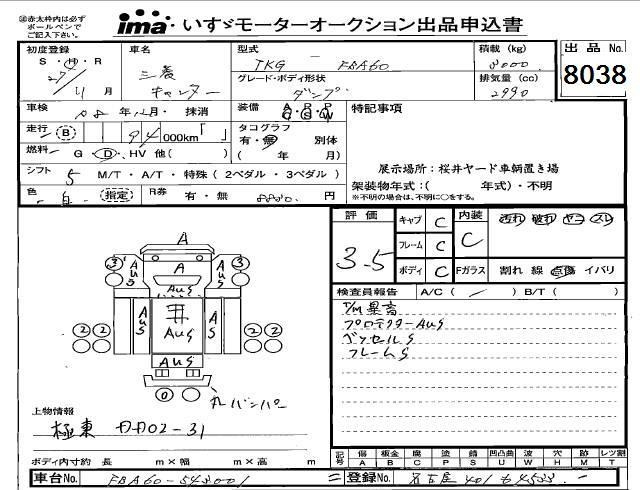 ㊟赤太枠内は必ず
ボールペンで
ご記入下さい。
ima・いすゞモーターオークション出品申込書
初度登録 車名 型式 積載 (kg) 出品 No.
S・H・R 三菱 TKG - FBA60 3000 8038
27/11月 キャンター グレード・ボディ形状 排気量 (cc)
ダンプ 2990
車検 年 月・抹消 装備 A・P・P 特記事項
C・S・W
走行 B 94 000km「 」 タコグラフ
有・無 別体
燃料 G・D・HV 他( ) ( 年 月) 展示場所:桜井ヤード車輌置き場
シフト 5 M/T・A/T・特殊(2ペダル・3ペダル) 架装物年式:( 年式)・不明
※不明の場合は、不明に〇をする。
色 白 指定 R券 有・無 8880 円
評価 キャブ C 内装 汚れ 破れ ヤニ スレ
3.5 フレーム C C
ボディ C Fガラス 割れ 線 点傷 イバリ
検査員報告 A/C ( ) B/T ( )
T/M異高
プロテクターAUS
ベッセルS
フレームS
A
3 A 3
AUS AUS AUS
AUS AUS AUS
2 2 2 2
AUS
0 丸バンパー
上物情報
極東 DD02-31
ボディ内寸約 長 m×幅 m×高 m
記号 傷 板金 腐 塗 錆 凹凸曲 波 穴 跡 レツ割
A B C P S U W H M T
車台No. FBA60-543001 登録No. 名古屋 401 も4533